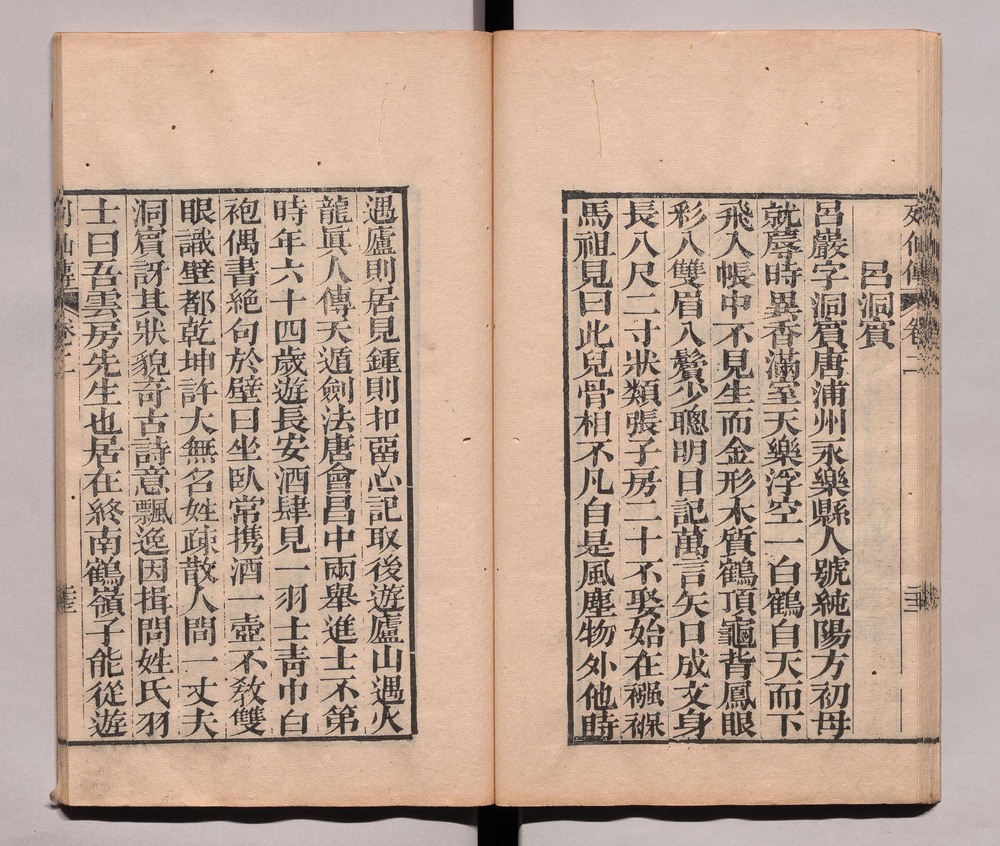 列仙傳 卷二
呂洞賔
呂巖字洞賔唐蒲州永樂縣人號純陽方初母
就蓐時異香滿室天樂浮空一白鶴自天而下
飛入帳中不見生而金形木質鶴頂龜背鳳眼
彩八雙眉入鬢少聰明日記萬言矢口成文身
長八尺二寸狀類張子房二十不娶始在襁褓
馬祖見曰此兒骨相不凡自是風塵物外他時
遇廬則居見鍾則扣畱心記取後遊廬山遇火
龍眞人傳天遁劍法唐會昌中兩舉進士不第
時年六十四歲遊長安酒肆見一羽士青巾白
袍偶書絶句於壁曰坐臥常携酒一壺不敎雙
眼識壁都乾坤許大無名姓疎散人間一丈夫
洞賔訝其狀貌奇古詩意飄逸因揖問姓氏羽
士曰吾雲房先生也居在終南鶴嶺子能從遊
列仙傳 卷二